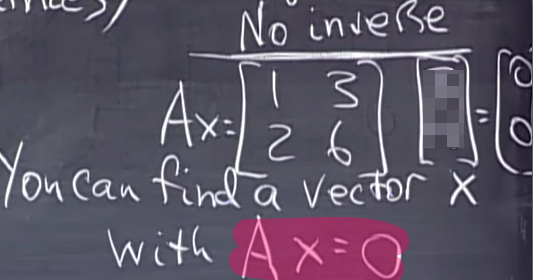 No inverse
Ax= [1 3
2 6] [ ] = [0
0
You can find a vector x
with Ax=0